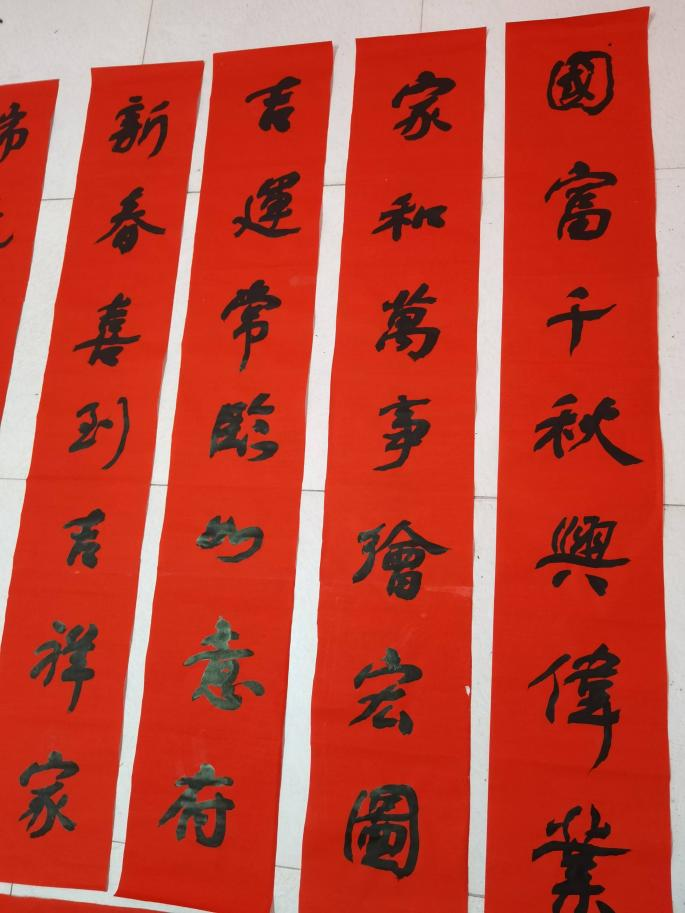 國富千秋興偉業
家和萬事繪宏圖
吉運常臨如意府
新春喜到吉祥家